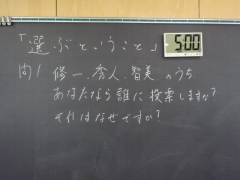 「選ぶということ」 5:00
問1 修一、秀人、智美のうち
あなたなら誰に投票しますか?
それはなぜですか?